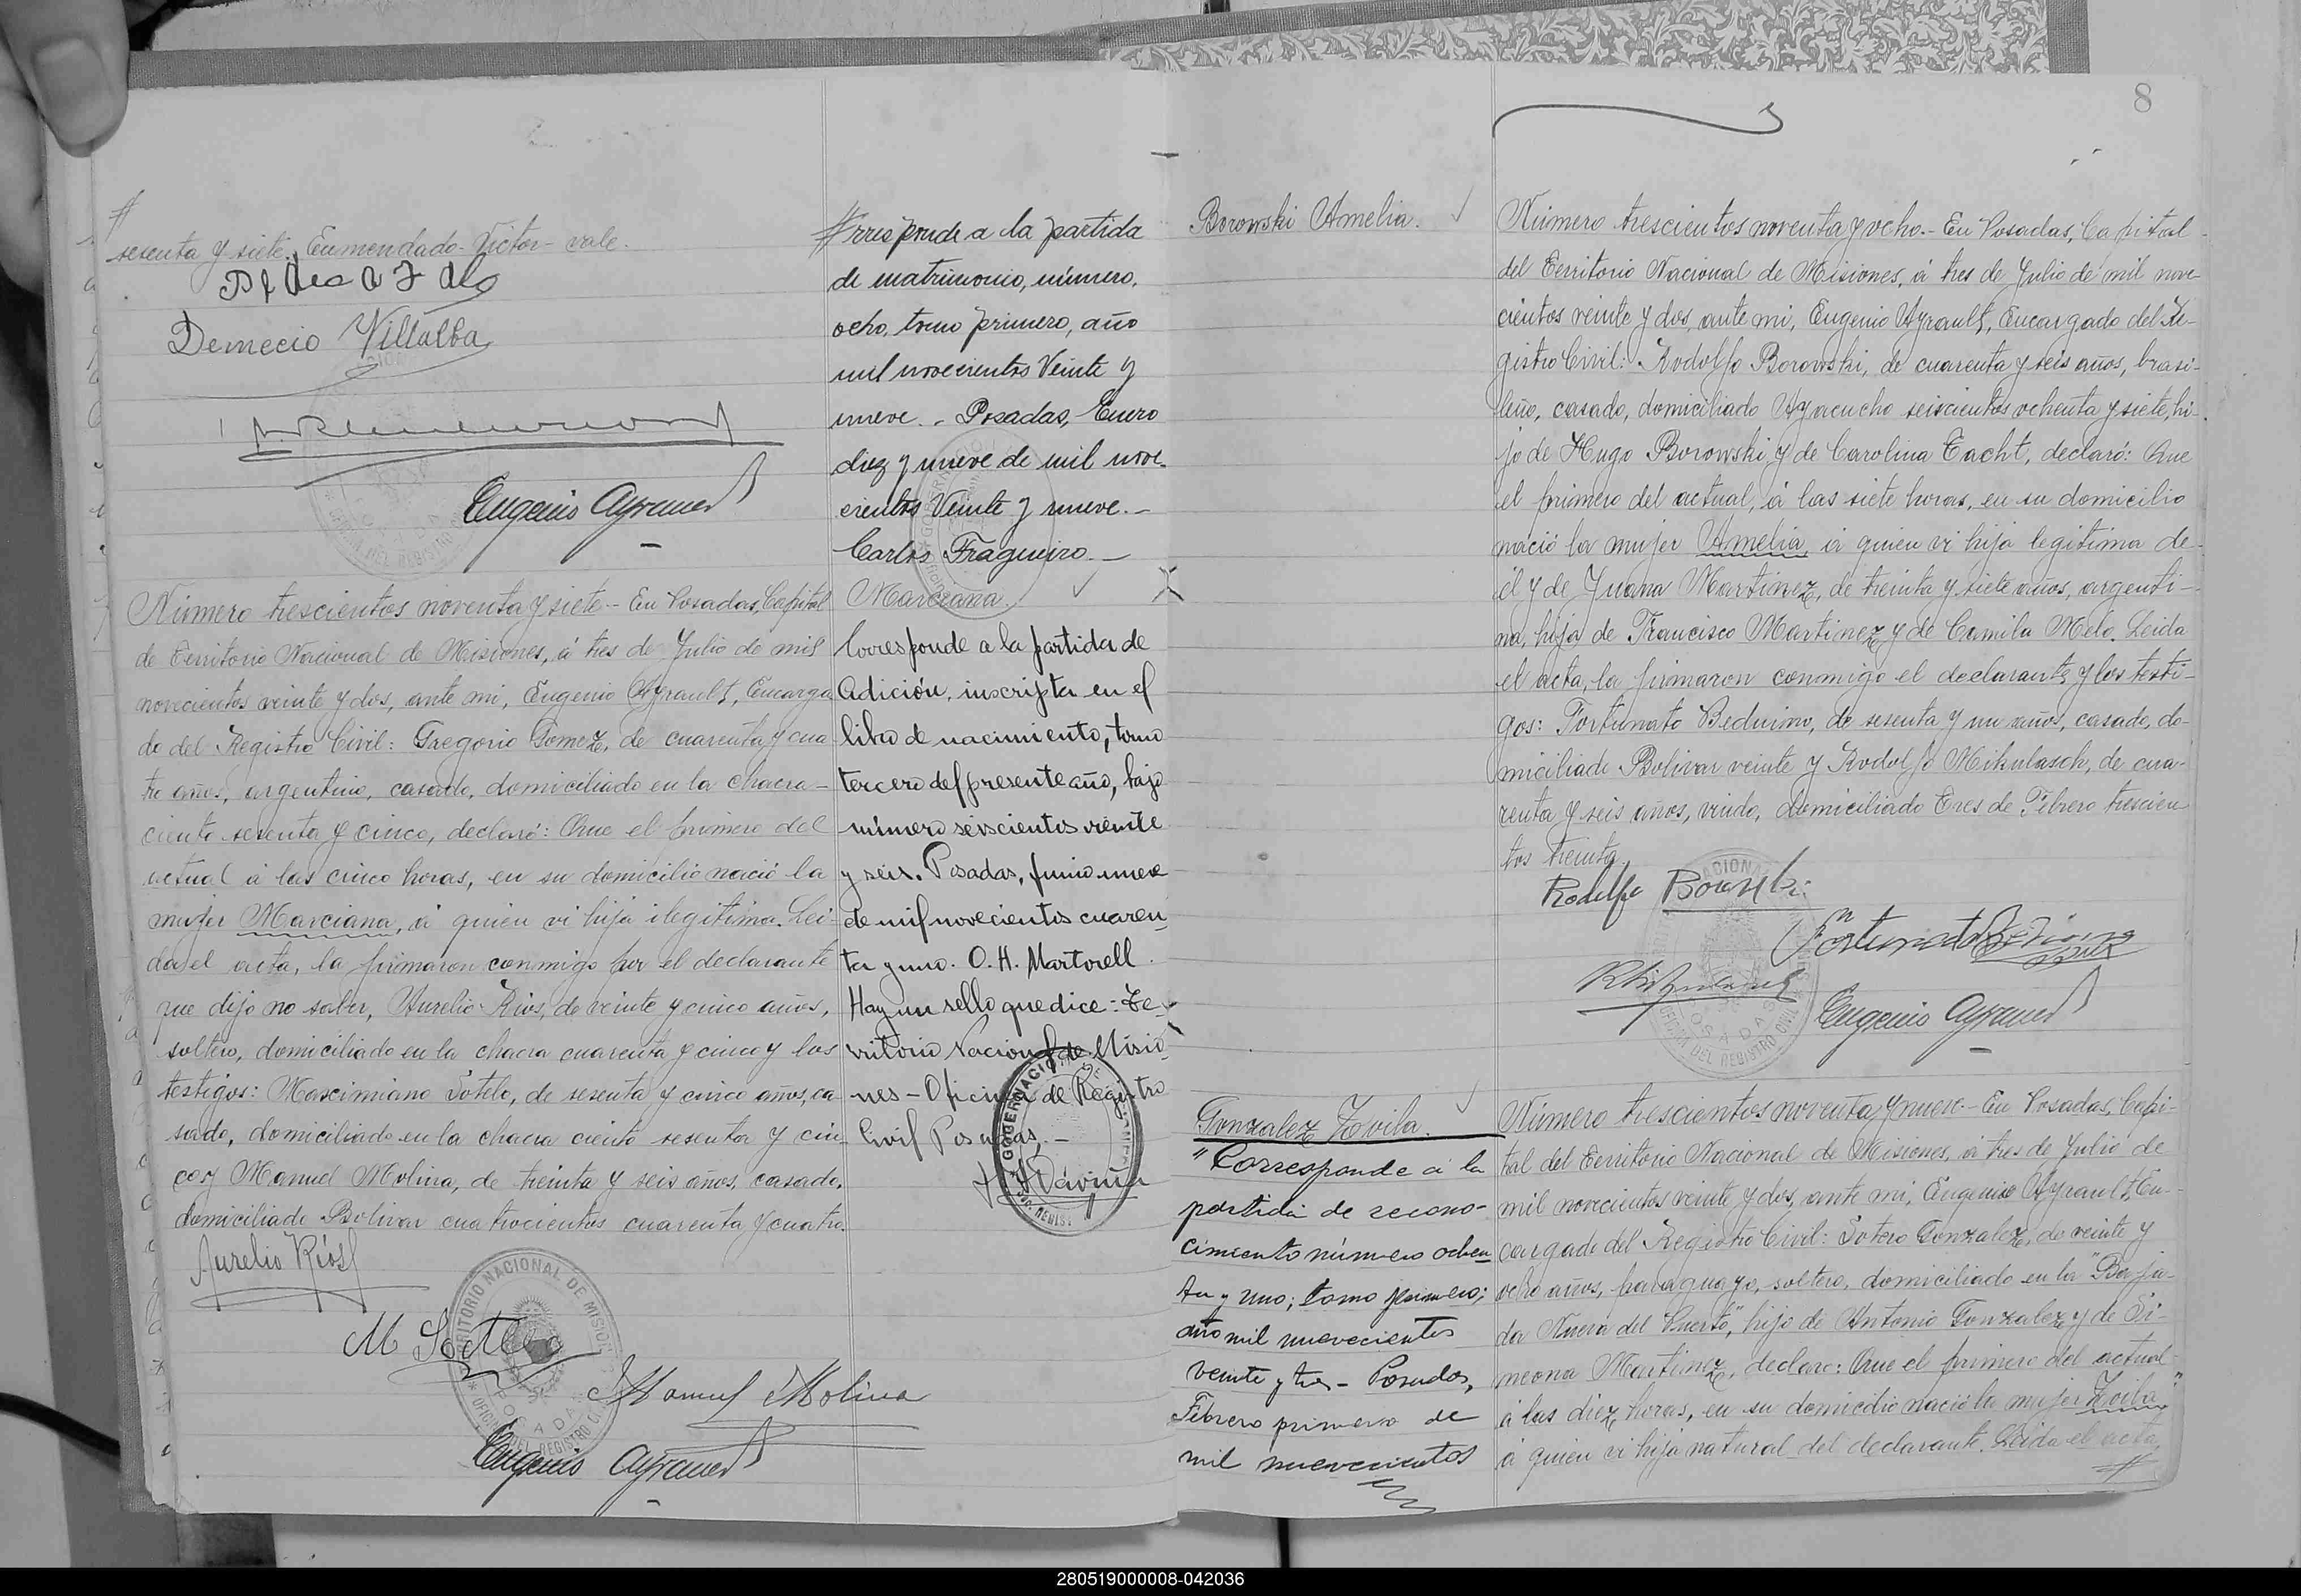 #
sesenta y siete. Enmendado-Victor-vale.
Demecio Villalba
Eugenio Ayrault
Número trescientos noventa y siete.- En Posadas, Capital
de Territorio Nacional de Misiones, á tres de Julio de mil
novecientos veinte y dos, ante mi, Eugenio Ayrault, Encarga
do del Registro Civil: Gregorio Gomez, de cuarenta y cua
tro años, argentino, casado, domiciliado en la chacra-
ciento sesenta y cinco, declaró: Que el primero del
actual á las cinco horas, en su domicilio nació la
mujer Marciana, á quien vi hija ilegitima. Lei-
da el acta, la firmaron conmigo por el declarante
que dijo no saber, Aurelio Rios, de veinte y cinco años,
soltero, domiciliado en la chacra cuarenta y cinco y los
testigos: Mascimiano Sotelo, de sesenta y cinco años, ca
sado, domiciliado en la chacra ciento sesenta y cin
co y Manuel Molina, de treinta y seis años, casado,
domiciliado Bolivar cuatrocientos cuarenta y cuatro.
Aurelio Ríos
M Sotelo
Manuel Molina
Eugenio Ayrault
#rresponde a la partida
de matrimonio, número,
ocho, tomo primero, año
mil novecientos Veinte y
nueve.- Posadas, Enero
diez y nueve de mil nove-
cientos Veinte y nueve.-
Carlos Fragueiro.-
Marciana
Corresponde a la partida de
Adición, inscripta en el
libro de nacimiento, tomo
tercero del presente año, bajo
número seiscientos veinte
y seis. Posadas, junio nueve
de mil novecientos cuaren
ta y uno. O. H. Martorell.
Hay un sello que dice: Te-
rritorio Nacional de Misio
nes - Oficina de Registro
Civil Posadas.-
8
Borowski Amelia.
Número trescientos noventa y ocho.- En Posadas, Capital
del Territorio Nacional de Misiones, á tres de Julio de mil nove-
cientos veinte y dos, ante mi, Eugenio Ayrault, Encargado del Re-
gistro Civil: Rodolfo Borowski, de cuarenta y seis años, brasi-
leño, casado, domiciliado Ayacucho seiscientos ochenta y siete, hi-
jo de Hugo Borowski y de Carolina Tacht, declaró: Que
el primero del actual, á las siete horas, en su domicilio
nació la mujer Amelia, á quien vi hija legitima de
él y de Juana Martinez, de treinta y siete años, argenti-
na, hija de Francisco Martinez y de Camila Melo. Leida
el acta, la firmaron conmigo el declarante y los testi-
gos: Fortunato Beduino, de sesenta y un años, casado, do-
miciliado Bolivar veinte y Rodolfo Mikulasch, de cua-
renta y seis años, viudo, domiciliado Tres de Febrero trescien
tos treinta.
Rodolfo Borowski
Fortunato
Eugenio Ayrault
Gonzalez Zoila.
"Corresponde a la
partida de recono-
cimiento número ochen
ta y uno; tomo primero;
año mil nuevecientos
veinte y tres - Posadas,
Febrero primero de
mil nuevecientos
Número trescientos noventa y nueve.- En Posadas, Capi-
tal del Territorio Nacional de Misiones, á tres de Julio de
mil novecientos veinte y dos, ante mi, Eugenio Ayrault, En-
cargado del Registro Civil: Sotero Gonzalez, de veinte y
ocho años, paraguayo, soltero, domiciliado en la "Baja-
da Nueva del Puerto", hijo de Antonio Gonzalez y de Si-
meona Martinez, declaro: Que el primero del actual
á las diez horas, en su domicilio nació la mujer Zoila
á quien vi hija natural del declarante. Leida el acta,
#
280519000008-042036